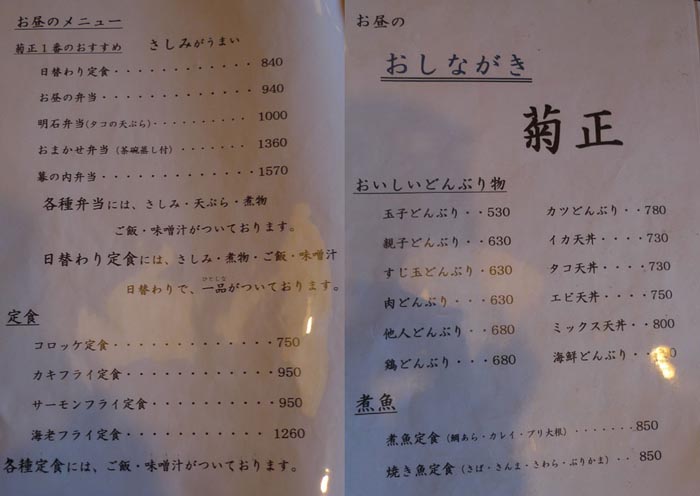 お昼のメニュー
菊正1番のおすすめ さしみがうまい
日替わり定食・・・・・・・・・・・・840
お昼の弁当・・・・・・・・・・・・・940
明石弁当(タコの天ぷら)・・・・・・・・・1000
おまかせ弁当(茶碗蒸し付)・・・・・・・1360
幕の内弁当・・・・・・・・・・・・・1570
各種弁当には、さしみ・天ぷら・煮物
ご飯・味噌汁がついております。
日替わり定食には、さしみ・煮物・ご飯・味噌汁
ひとしな
日替わりで、一品がついております。
定食
コロッケ定食・・・・・・・・・・・・・750
カキフライ定食・・・・・・・・・・・・950
サーモンフライ定食・・・・・・・・・・950
海老フライ定食・・・・・・・・・・・・1260
各種定食には、ご飯・味噌汁がついております。
お昼の
おしながき
菊正
おいしいどんぶり物
玉子どんぶり・・530
親子どんぶり・・・630
すじ玉どんぶり・630
肉どんぶり・・・・630
他人どんぶり・・・680
鶏どんぶり・・・・680
カツどんぶり・・・780
イカ天丼・・・・730
タコ天丼・・・・730
エビ天丼・・・・750
ミックス天丼・・800
海鮮どんぶり・・
煮魚
煮魚定食(鯛あら・カレイ・ブリ大根)・・・・・・・850
焼き魚定食(さば・さんま・さわら・ぶりかま)・・850